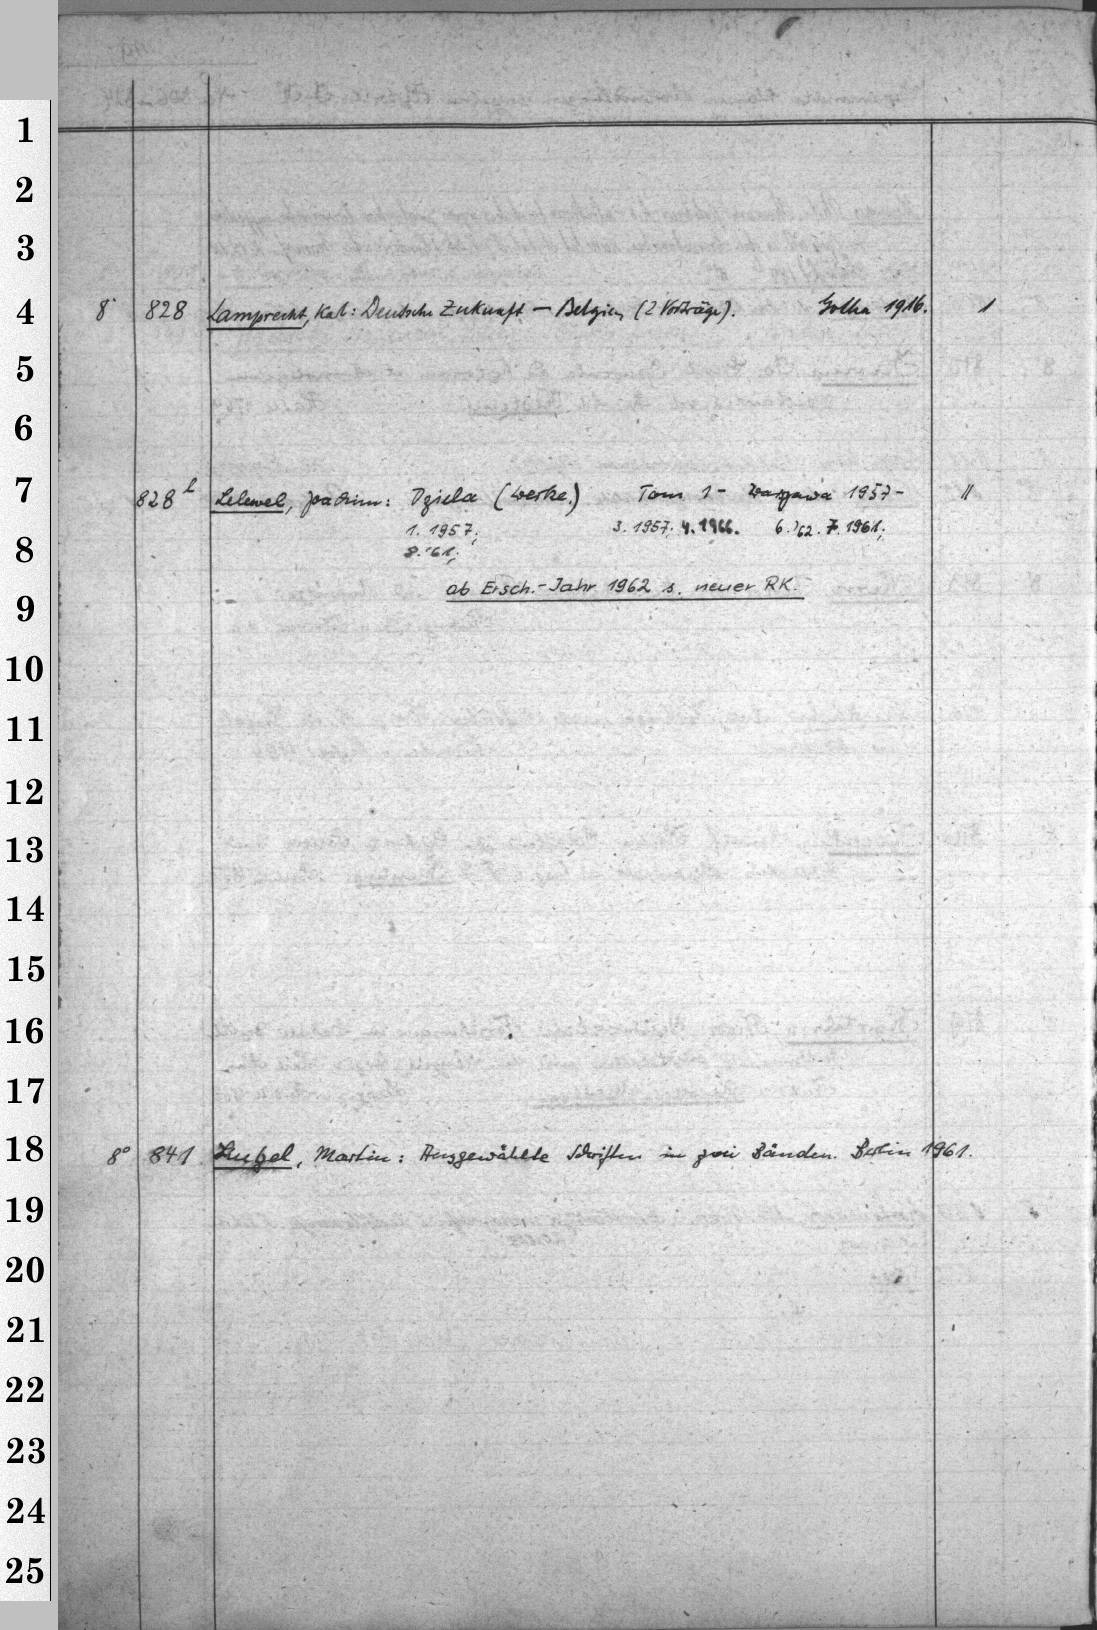 1
2
3
4
8° 828 Lamprecht, Karl: Deutsche Zukunft — Belgien (2 Vorträge). Gotha 1916. 1
5
6
7
828 b Lelewel, Joachim: Dzieła (Werke.) Tom 1 - Warszawa 1957 - "
1. 1957; 3. 1957; 4. 1966. 6. '62. 7. 1961;
8
8. '61;
9
ab Ersch.-Jahr 1962 s. neuer RK.
10
11
12
13
14
15
16
17
18
8° 841 Martin: Ausgewählte Schriften in zwei Bänden. Berlin 1961.
19
20
21
22
23
24
25